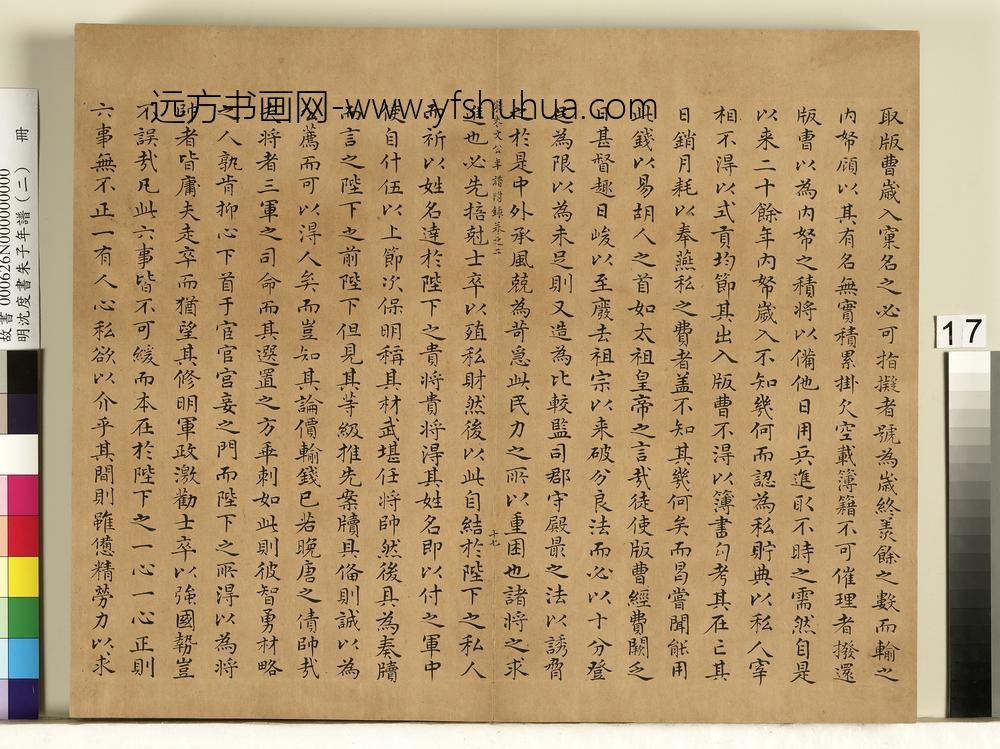 取版曹歲入窠名之必可指擬者號為歲終羨餘之數而輸之
內帑顧以其有名無實積累掛欠空載簿籍不可催理者撥還
版曹以為內帑之積將以備他日用兵進取不時之需然自是
以來二十餘年內帑歲入不知幾何而認為私貯典以私人宰
相不得以式貢均節其出入版曹不得以簿書勾考其在亡其
日銷月耗以奉燕私之費者蓋不知其幾何矣而曷嘗聞能用
此錢以易胡人之首如太祖皇帝之言哉徒使版曹經費闕乏
日甚督趣日峻以至廢去祖宗以来破分良法而必以十分登
足為限以為未足則又造為比較監司郡守殿最之法以誘脅
之於是中外承風競為苛急此民力之所以重困也諸將之求
文公年譜附錄卷之二
十七
進也必先掊尅士卒以殖私財然後以此自結於陛下之私人
而祈以姓名達於陛下之貴將貴將得其姓名即以付之軍中
使自什伍以上節次保明稱其材武堪任將帥然後具為奏牘
而言之陛下之前陛下但見其等級推先案牘具備則誠以為
公薦而可以得人矣而豈知其論價輸錢已若晚唐之債帥哉
夫將者三軍之司命而其選置之方乖刺如此則彼智勇材略
之人孰肯抑心下首于宦官宮妾之門而陛下之所得以為將
帥者皆庸夫走卒而猶望其修明軍政激勸士卒以強國勢豈
不誤哉凡此六事皆不可緩而本在於陛下之一心一心正則
六事無不正一有人心私欲以介乎其間則雖憊精勞力以求
远方书画网-www.yfshuhua.com
故書 000626N000000000
明沈度書朱子年譜(二) 冊
17